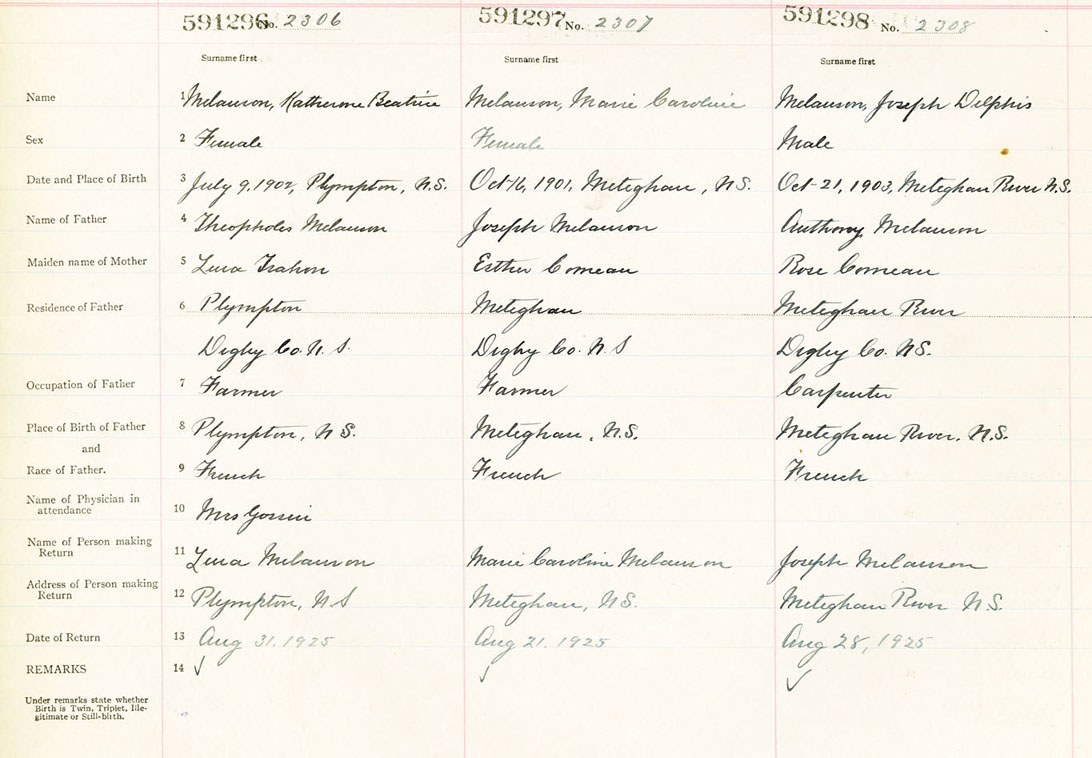 591296 No. 2306 591297 No. 2307 591298 No. 2308
Surname first Surname first Surname first
Name 1 Melanson, Katherine Beatrice Melanson, Marie Caroline Melanson, Joseph Delphis
Sex 2 Female Female Male
Date and Place of Birth 3 July 9, 1902, Plympton, N.S. Oct 16, 1901, Meteghan, N.S. Oct-21, 1903, Meteghan River N.S.
Name of Father 4 Theopholes Melanson Joseph Melanson Anthony Melanson
Maiden name of Mother 5 Esther Comeau Rose Comeau
Residence of Father 6 Plympton Meteghan Meteghan River
Digby Co. N.S. Digby Co. N.S Digby Co. N.S.
Occupation of Father 7 Farmer Farmer Carpenter
Place of Birth of Father 8 Plympton, N.S. Meteghan, N.S. Meteghan River. N.S.
and
Race of Father. 9 French French French
Name of Physician in
attendance 10 Mrs
Name of Person making
Return 11 Melanson Marie Caroline Melanson Joseph Melanson
Address of Person making
Return 12 Plympton, N.S Meteghan, N.S. Meteghan River N.S.
Date of Return 13 Aug 31. 1925 Aug 21. 1925 Aug 28, 1925
REMARKS 14 ✓ ✓ ✓
Under remarks state whether
Birth is Twin, Triplet, Ille-
gitimate or Still-birth.